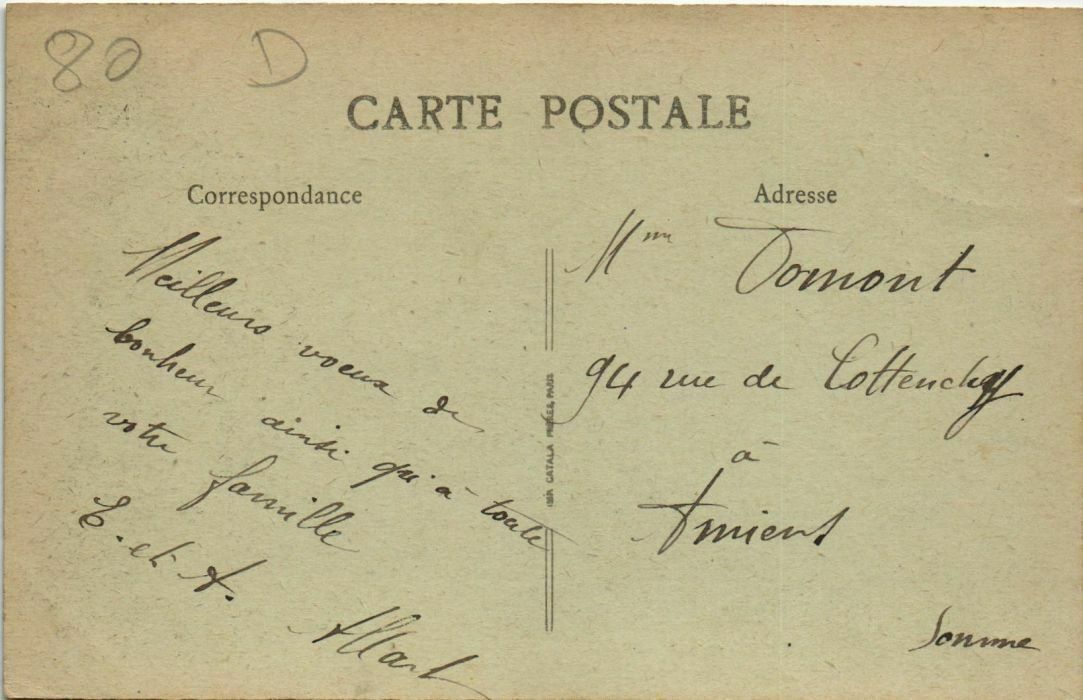 80 D
CARTE POSTALE
Correspondance
Meilleurs voeux de
bonheur ainsi qu'à toute
votre famille
E. et A.
Allart
IMP. CATALA FRÈRES, PARIS
Adresse
Mme Domont
94 rue de Cottenchy
à
Amiens
Somme